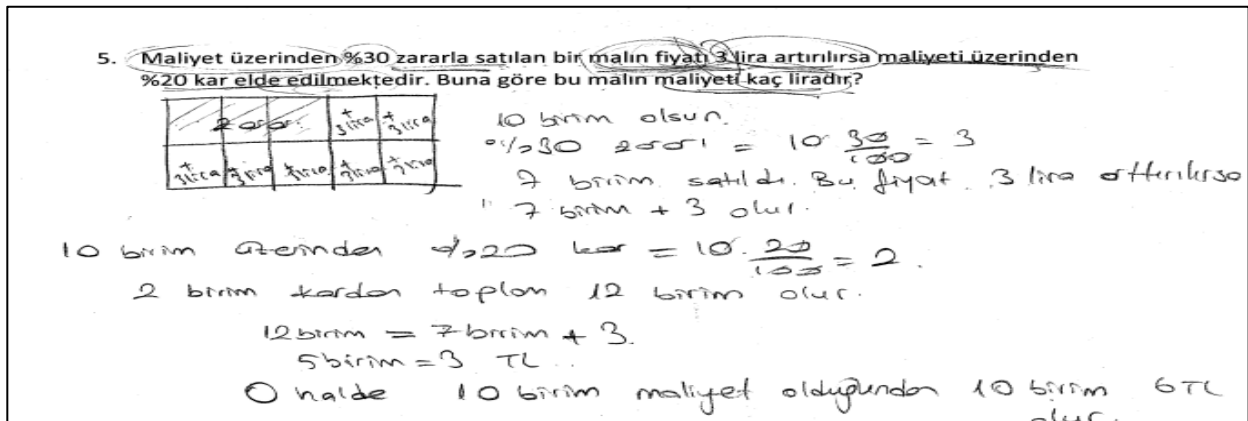 5. Maliyet üzerinden %30 zararla satılan bir malın fiyatı 3 lira artırılırsa maliyeti üzerinden
%20 kar elde edilmektedir. Buna göre bu malın maliyeti kaç liradır?
zarar + 3 lira + 3 lira
+ 3 lira + 3 lira + 3 lira + 3 lira + 3 lira
10 birim olsun.
%30 zararı = 10 · 30/100 = 3
7 birim satıldı. Bu fiyat 3 lira arttırılırsa
7 birim + 3 olur.
10 birim üzerinden %20 kar = 10 · 20/100 = 2.
2 birim kardan toplam 12 birim olur.
12 birim = 7 birim + 3.
5 birim = 3 TL
O halde 10 birim maliyet olduğundan 10 birim 6 TL
olur.